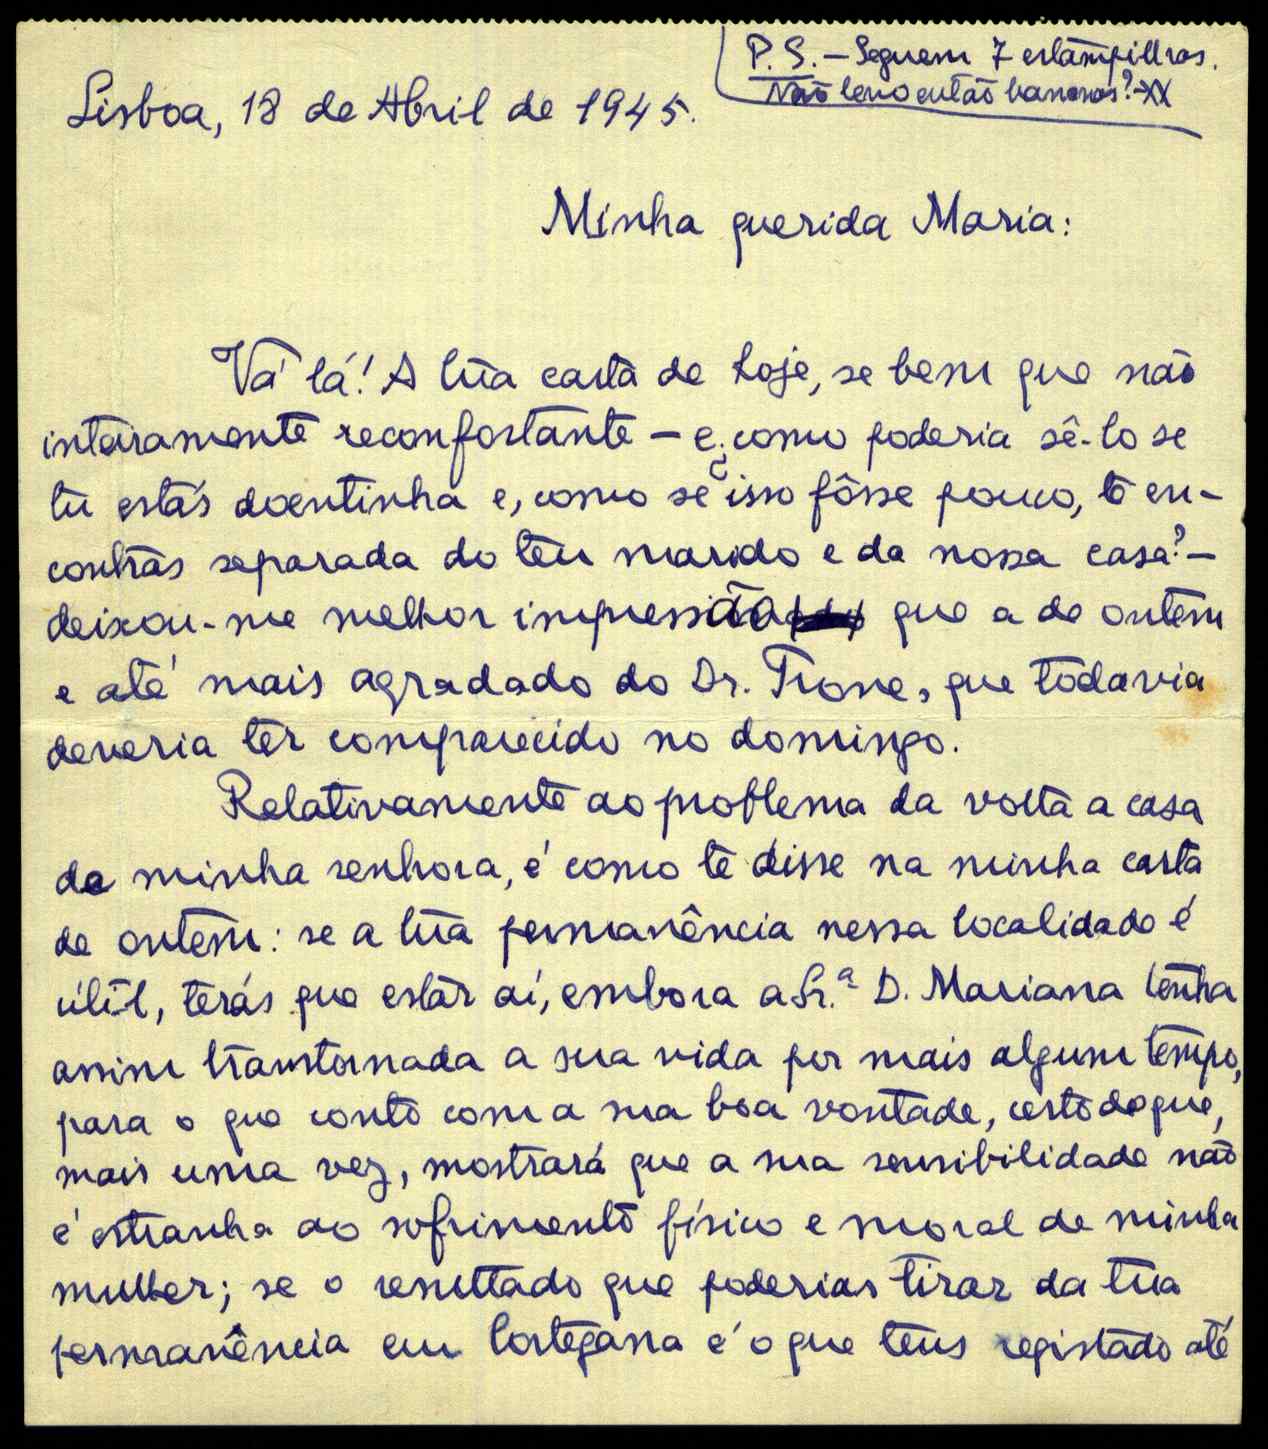 P. S. — Seguem 7 estampilhas.
Não levo então bananas? XX
Lisboa, 18 de Abril de 1945.
Minha querida Maria:
Vá lá! A tua carta de hoje, se bem que não
inteiramente reconfortante — e ¿como poderia sê-lo se
tu estás doentinha e, como se isso fôsse pouco, te en-
contras separada do teu marido e da nossa casa? —
deixou-me melhor impressão que a de ontem
e até mais agradado do Dr. Trone, que todavia
deveria ter comparecido no domingo.
Relativamente ao problema da volta a casa
da minha senhora, é como te disse na minha carta
de ontem: se a tua permanência nessa localidade é
útil, terás que estar aí, embora a Sr.ª D. Mariana tenha
assim transtornada a sua vida por mais algum tempo,
para o que conto com a sua boa vontade, certo de que,
mais uma vez, mostrará que a sua sensibilidade não
é estranha ao sofrimento físico e moral de minha
mulher; se o resultado que poderias tirar da tua
permanência em Cortegana é o que tens registado até